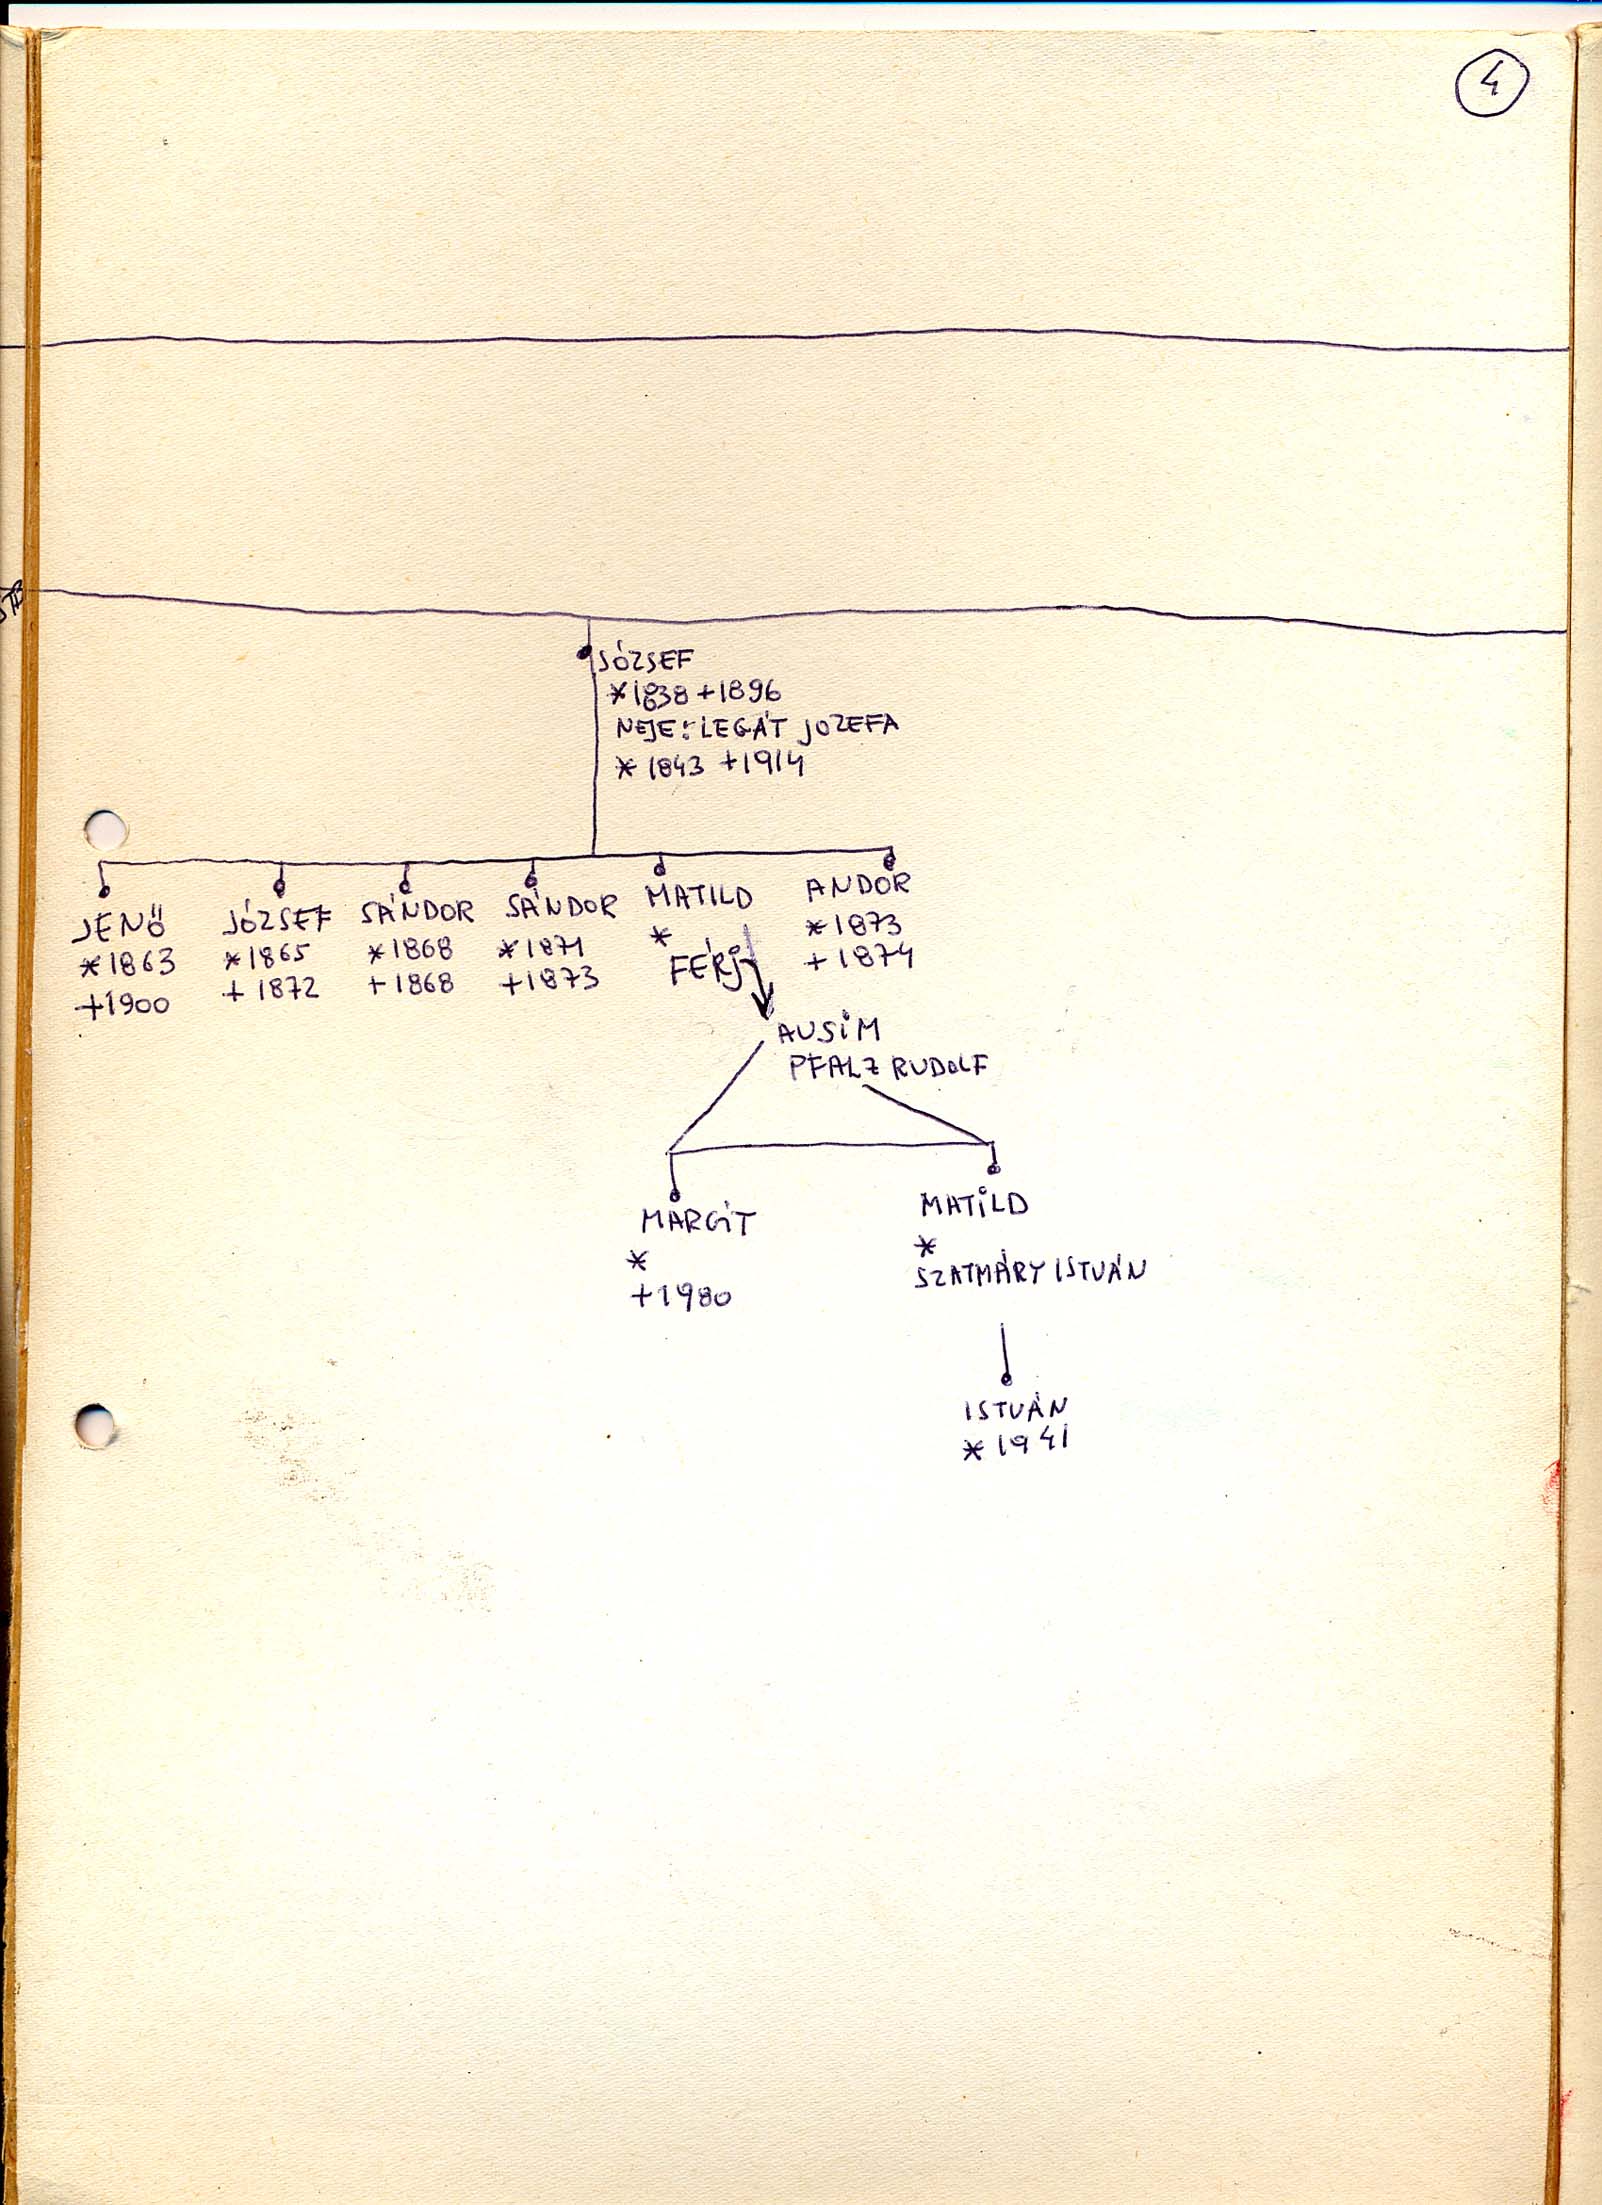 4
JÓZSEF
*1838 +1896
NEJE: LEGÁT JOZEFA
* 1843 +1914
JENŐ
*1863
+1900
JÓZSEF
*1865
+ 1872
SÁNDOR
*1868
+1868
SÁNDOR
*1871
+1873
MATILD
*
FÉRJ
ANDOR
*1873
+ 1874
AUSIM
PFALZ RUDOLF
MARGIT
*
+1980
MATILD
*
SZATMÁRY ISTVÁN
ISTVÁN
* 1941